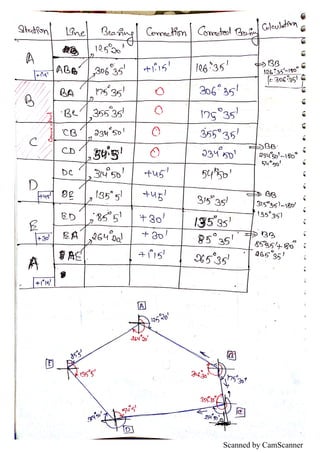 Station Line Bearing Correction Corrected Bearing Calculation
A AB 125°20'
+1°15' AB 306°35' +1°15' 126°35' BB
126°35'-180°
= 306°35'
B BA 175°35' 0 306°35'
BC 355°35' 0 175°35'
C CB 234°50' 0 355°35'
CD 54°5' 0 234°50' BB
234°50'-180
54°50'
D DC 314°50' +45' 54°50'
+45' DE 135°5' +45' 315°35' BB
315°35'-180°
135°35'
E ED 85°5' +30' 135°35'
+30' EA 264°20' +30' 85°35' BB
85°35'+180°
265°35'
A AE +1°15' 265°35'
+1°15'
A
125°20'
264°20'
E 85°5'
135°5'
B
306°35'
175°35'
355°35'
C
54°5'
D
Scanned by CamScanner